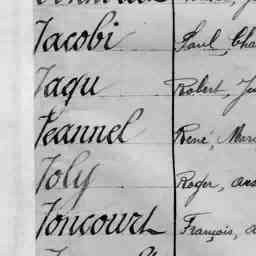 Jacobi Paul, Cha
Jaqu Robert, Ju
Jeannel René Marc
Joly Roger, ans
Joncourt François, a